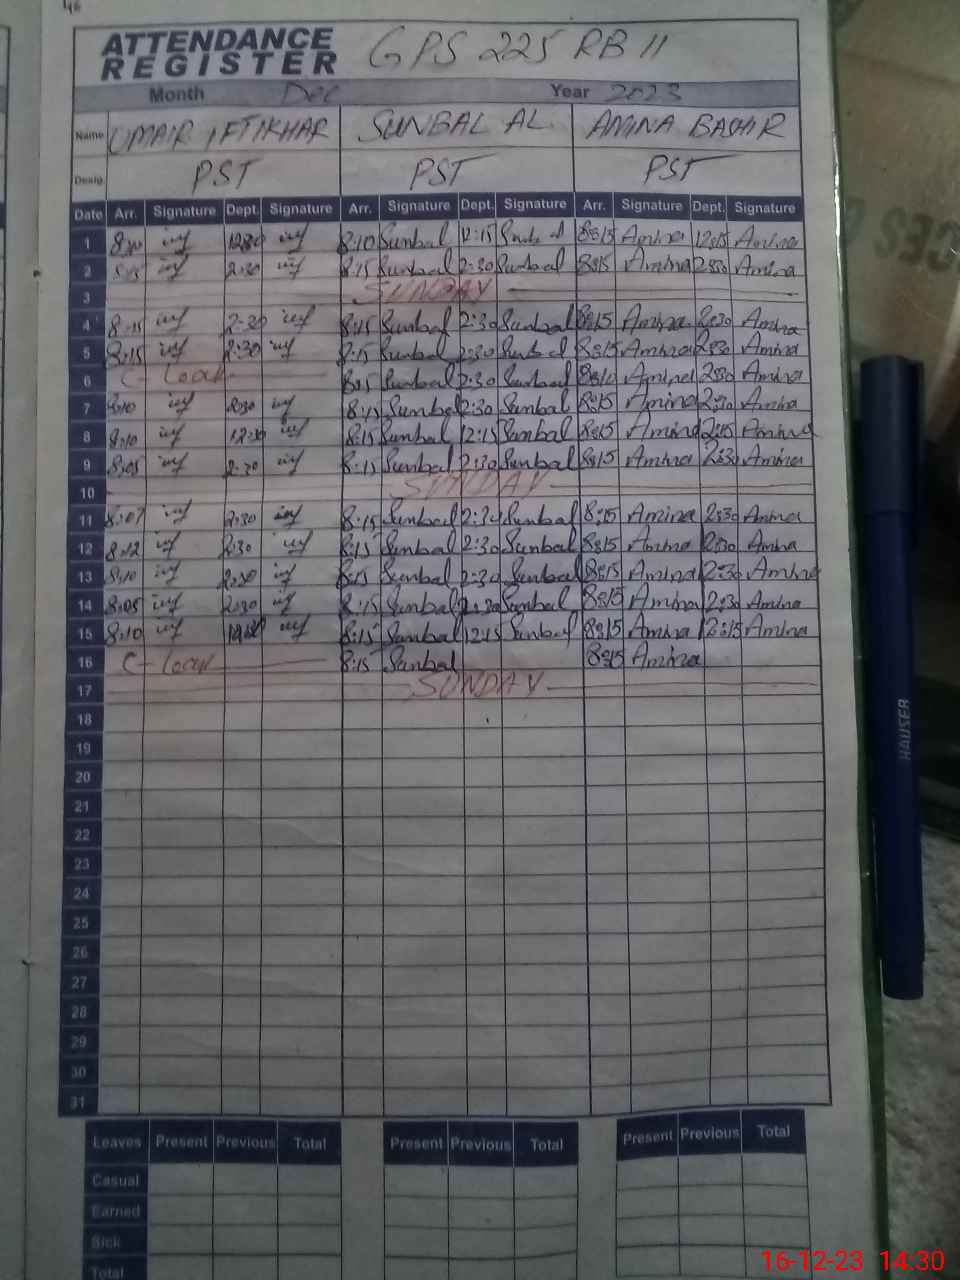 46
ATTENDANCE REGISTER GPS 225 RB II
Month Dec Year 2023
Name UMAIR IFTIKHAR SUNBAL AL. AMINA BASHIR
Desig PST PST PST
Date Arr. Signature Dept. Signature Arr. Signature Dept. Signature Arr. Signature Dept. Signature
1 12:30 8:10 Sunbal 12:15 Sunbal 8:15 Amina 12:15 Amina
2 8:15 2:30 8:15 Sunbal 2:30 Sunbal 8:15 Amina 2:30 Amina
3 SUNDAY
4 8:15 2:30 8:15 Sunbal 2:30 Sunbal 8:15 Amina 2:30 Amina
5 8:15 2:30 8:15 Sunbal 2:30 Sunbal 8:15 Amina 2:30 Amina
6 C-Leave 8:15 Sunbal 2:30 Sunbal 8:10 Amina 2:30 Amina
7 8:10 2:30 8:15 Sunbal 2:30 Sunbal 8:15 Amina 2:30 Amina
8 8:10 12:30 8:15 Sunbal 12:15 Sunbal 8:15 Amina 12:15 Amina
9 8:05 2:30 8:15 Sunbal 2:30 Sunbal 8:15 Amina 2:30 Amina
10 SUNDAY
11 8:07 2:30 8:15 Sunbal 2:30 Sunbal 8:15 Amina 2:30 Amina
12 8:12 2:30 8:15 Sunbal 2:30 Sunbal 8:15 Amina 2:30 Amina
13 8:10 2:30 8:15 Sunbal 2:30 Sunbal 8:15 Amina 2:30 Amina
14 8:05 2:30 8:15 Sunbal 2:30 Sunbal 8:15 Amina 2:30 Amina
15 8:10 8:15 Sunbal 12:15 Sunbal 8:15 Amina 12:15 Amina
16 C-Leave 8:15 Sunbal 8:15 Amina
17 SUNDAY
18
19
20
21
22
23
24
25
26
27
28
29
30
31
Leaves Present Previous Total Present Previous Total Present Previous Total
Casual
Earned
Sick
Total
HAUSER
16-12-23 14:30